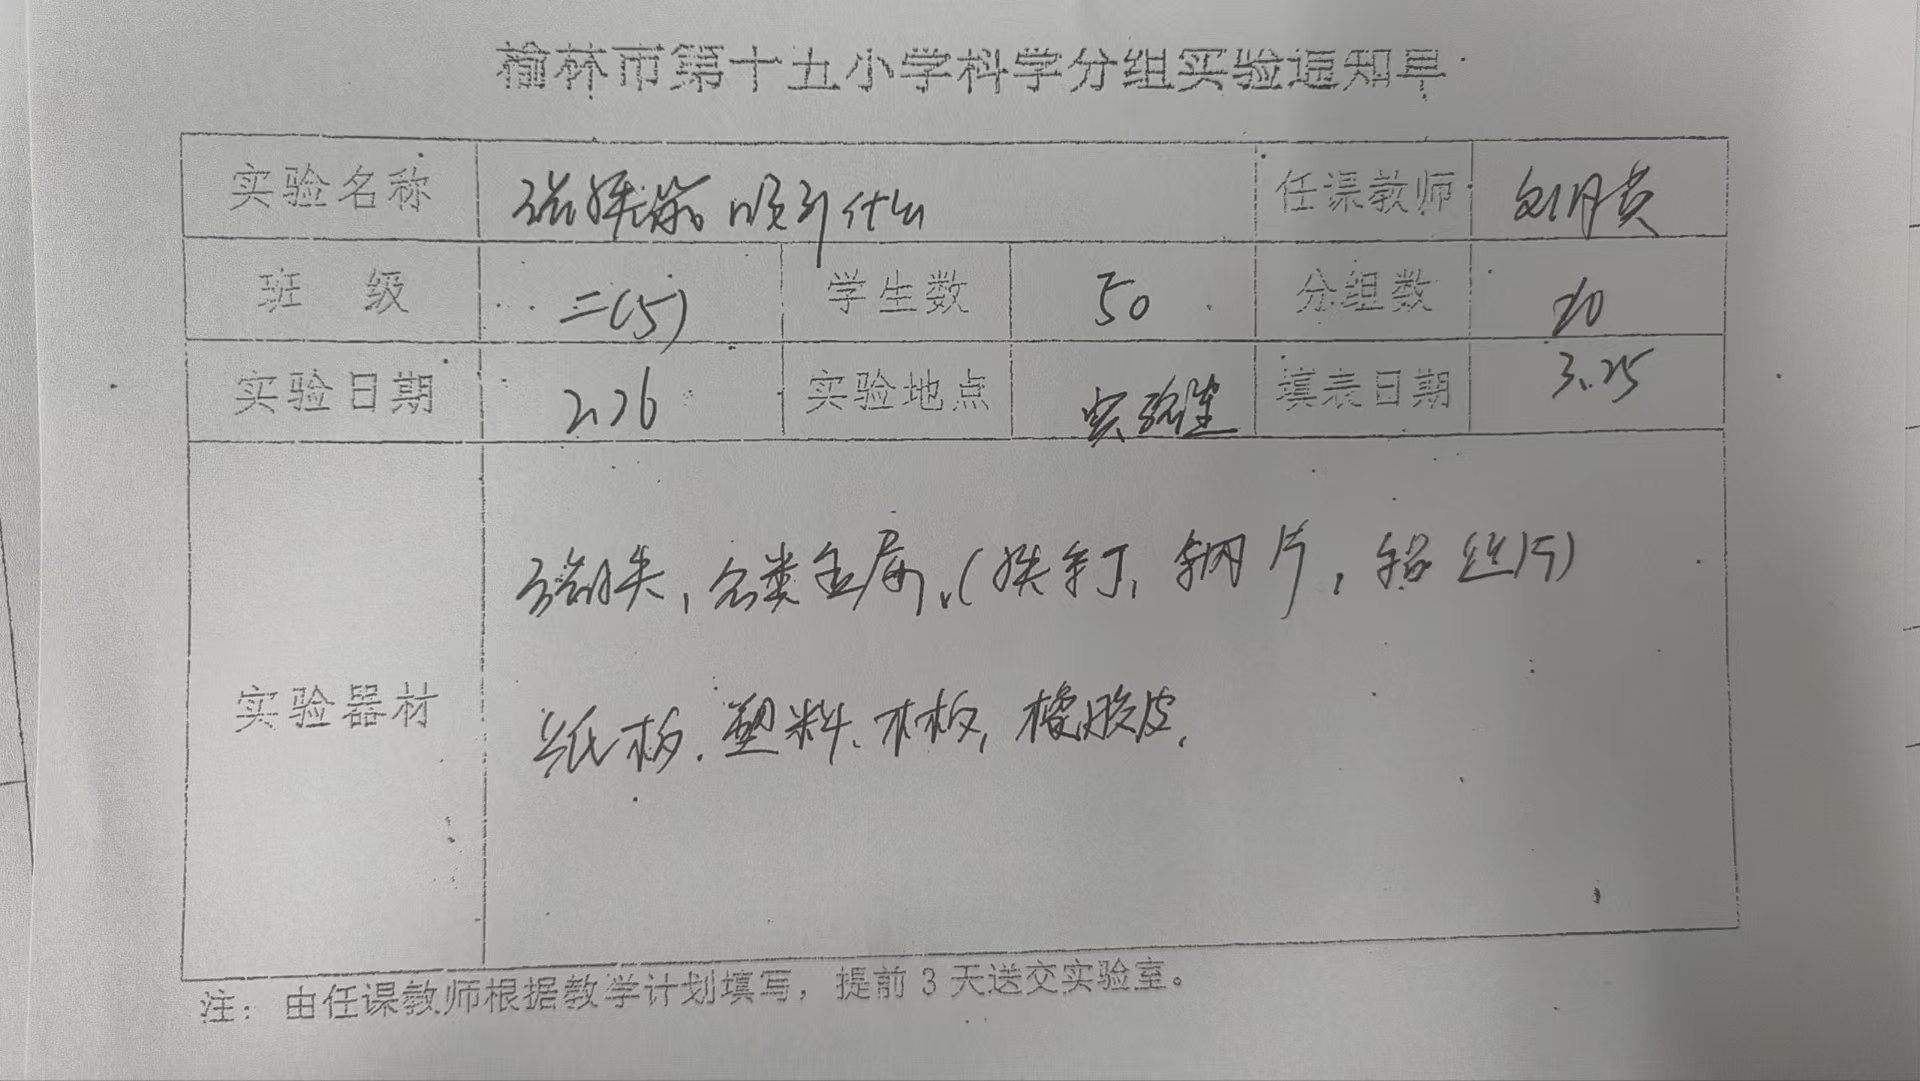 榆林市第十五小学科学分组实验通知单
实验名称 磁铁能吸引什么 任课教师 刘月英
班 级 二(5) 学生数 50 分组数
实验日期 实验地点 实验室 填表日期 3.25
磁铁,各类金属,(铁钉,钢片,铝丝片)
实验器材
纸板.塑料、木板,橡胶皮,
注:由任课教师根据教学计划填写,提前3天送交实验室。